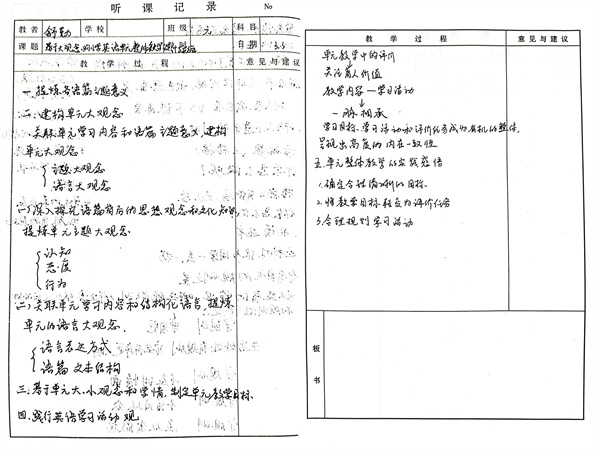 听课记录 No
教者 舒勤 学校 班级 元 科目
课题 日期 3.5
教学过程 意见与建议
一.提炼各语篇主题意义
二.建构单元大观念
关联单元学习内容和语篇主题意义,建构
单元大观念:
主题大观念
语言大观念
(一)深入探究语篇背后的思想观念和文化知识,
提炼单元主题大观念.
认知
态度
行为
(二)关联单元学习内容和结构化语言,提炼
单元的语言大观念.
语言表达方式
语篇文本结构
三.基于单元大、小观念和学情,制定单元教学目标.
四.践行英语学习活动观
教学过程 意见与建议
单元教学中的评价
关注育人价值
教学内容—学习活动
一脉相承
学习目标、学习活动和评价任务成为有机的整体,
呈现出高度的内在一致性
五.单元整体教学的实践感悟
1.确定合理清晰的目标.
2.将教学目标转变为评价任务
3.合理规划学习活动
板书